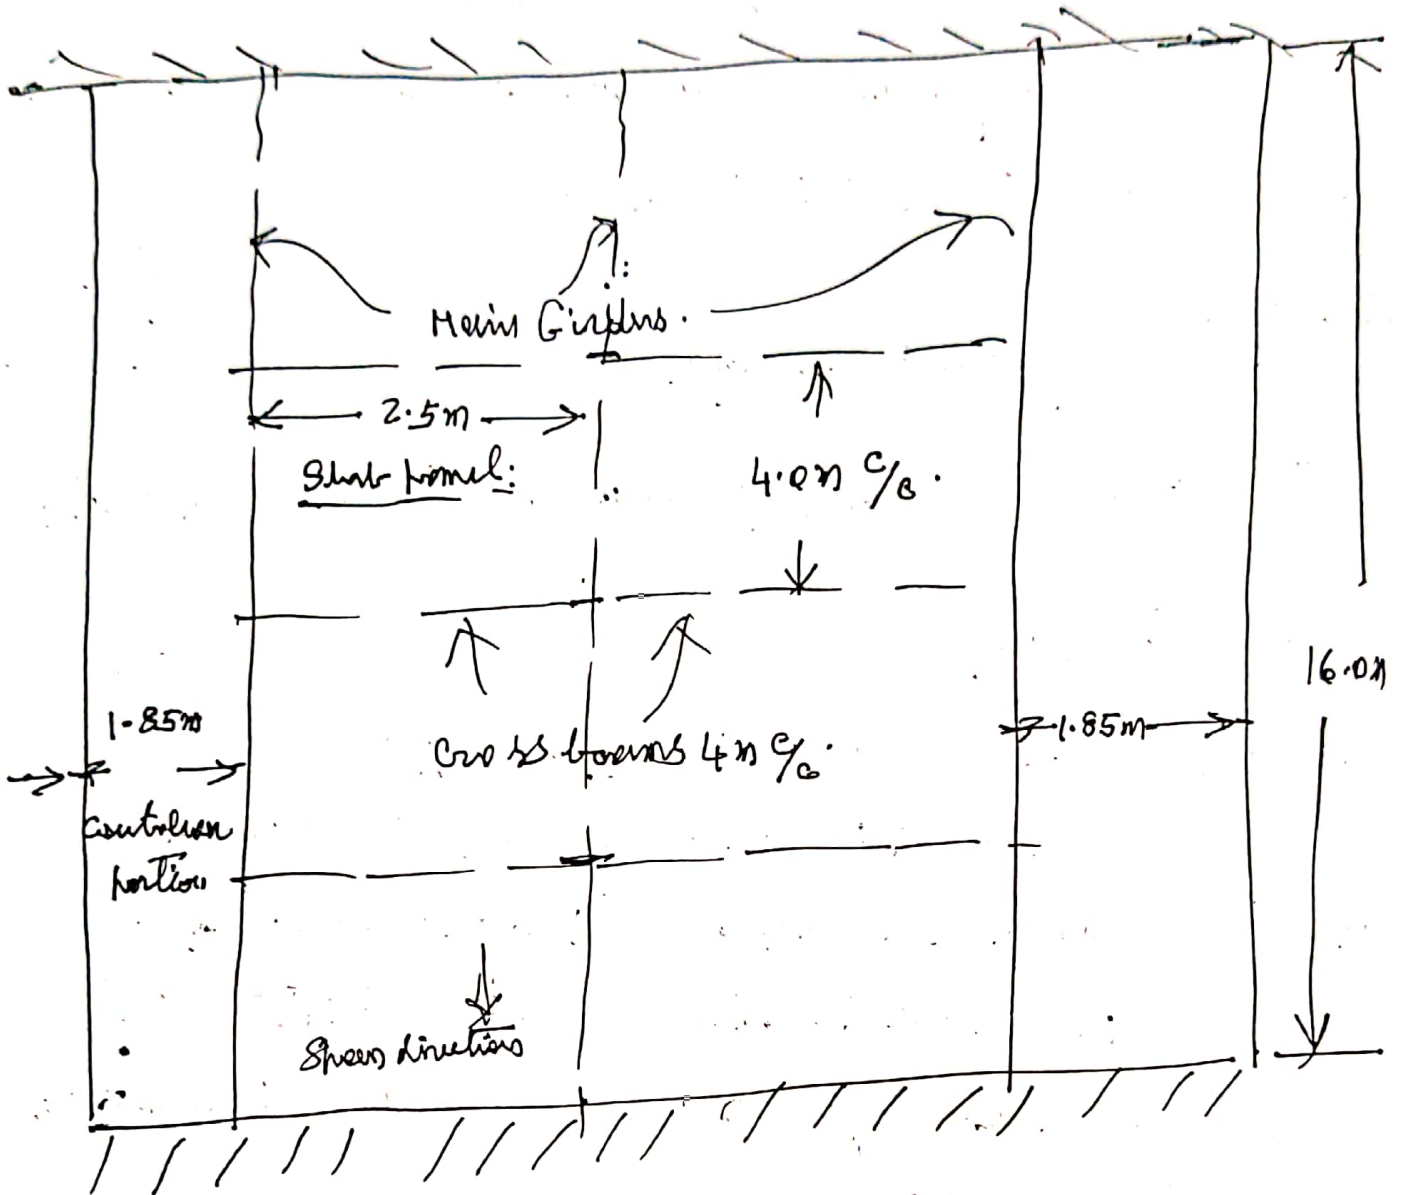 Main Girders.
2.5m
Slab panel:
4.0m c/c.
16.0m
1.85m
1.85m
Cross beams 4m c/c.
Cantilever
portion
Span direction